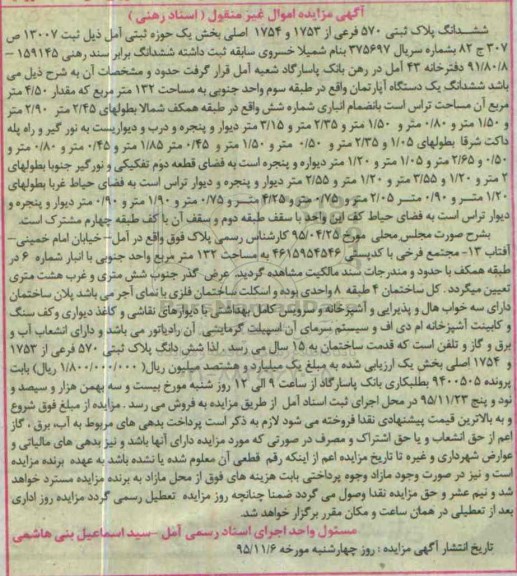 آگهی مزایده اموال غیر منقول ( اسناد رهنی )
ششدانگ پلاک ثبتی ۵۷۰ فرعی از ۱۷۵۳ و ۱۷۵۴ اصلی بخش یک حوزه ثبتی آمل ذیل ثبت ۱۳۰۰۷ ص
۳۰۷ ج ۸۲ بشماره سریال ۳۷۵۶۹۷ بنام شمیلا خسروی سابقه ثبت داشته ششدانگ برابر سند رهنی ۱۵۹۱۴۵ –
۹۱/۸۰/۸ دفترخانه ۴۳ آمل در رهن بانک پاسارگاد شعبه آمل قرار گرفت حدود و مشخصات آن به شرح ذیل می
باشد ششدانگ یک دستگاه آپارتمان واقع در طبقه سوم واحد جنوبی به مساحت ۱۳۲ متر مربع که مقدار ۴/۵۰ متر
مربع آن مساحت تراس است بانضمام انباری شماره شش واقع در طبقه همکف شمالا بطولهای ۲/۴۵ متر ۲/۹۰ متر
و ۱/۵۰ متر و ۰/۸۰ متر و ۱/۵۰ متر و ۲/۳۵ متر و ۳/۱۵ متر دیوار و پنجره و درب و دیواریست به نور گیر و راه پله
داکت شرقا بطولهای ۱/۰۵ و ۲/۳۵ متر و ۰/۵۰ متر و ۱/۵۰ متر و ۰/۴۵ متر ۱/۸۵ متر و ۰/۴۵ متر و ۰/۸۰ متر و
۰/۵۰ و ۲/۶۵ متر و ۱/۰۵ متر و ۱/۲۰ متر دیواره و پنجره است به فضای قطعه دوم تفکیکی و نورگیر جنوبا بطولهای
۲ متر و ۱/۲۰ و ۳/۵۵ متر و ۱/۲۰ متر و ۲/۵۵ متر دیوار و پنجره و دیوار تراس است به فضای حیاط غربا بطولهای
۱/۲۰ متر و ۰/۹۰ متر ۲/۰۵ متر و ۰/۷۵ متر و ۴/۲۵ متر و ۰/۷۵ متر و ۱/۹۰ متر و ۰/۹۰ متر دیوار و پنجره و
دیوار تراس است به فضای حیاط کف این واحد با سقف طبقه دوم و سقف آن با کف طبقه چهارم مشترک است.
بشرح صورت مجلس محلی مورخ ۹۵/۰۴/۲۵ کارشناس رسمی پلاک فوق واقع در آمل – خیابان امام خمینی–
آفتاب ۱۳– مجتمع فرخی با کدپستی ۴۶۱۵۹۵۴۵۴۶ به مساحت ۱۳۲ متر مربع واحد جنوبی با انبار شماره ۶ در
طبقه همکف با حدود و مندرجات سند مالکیت مشاهده گردید. عرض گذر جنوب شش متری و غرب هشت متری
تعیین میگردد . کل ساختمان ۴ طبقه ۸ واحدی بوده و اسکلت ساختمان فلزی با نمای آجر می باشد پلان ساختمان
دارای سه خواب هال و پذیرایی و آشپزخانه و سرویس کامل بهداشتی با دیوارهای نقاشی و کاغذ دیواری وکف سنگ
و کابینت آشپزخانه ام دی اف و سیستم سرمای آن اسپیلت گرمایشی آن رادیاتور می باشد و دارای انشعاب آب و
برق و گاز و تلفن است که قدمت ساختمان به ۱۵ سال می رسد . لذا شش دانگ پلاک ثبتی ۵۷۰ فرعی از ۱۷۵۳
و ۱۷۵۴ اصلی بخش یک ارزیابی شده به مبلغ یک میلیارد و هشتصد میلیون ریال( ۱/۸۰۰/۰۰۰/۰۰۰ ریال) بابت
پرونده ۹۴۰۰۵۰۵ بطلبکاری بانک پاسارگاد از ساعت ۹ الی ۱۲ روز شنبه مورخ بیست و سه بهمن هزار و سیصد و
نود و پنج ۹۵/۱۱/۲۳ در محل اجرای ثبت اسناد آمل از طریق مزایده به فروش می رسد . مزایده از مبلغ فوق شروع
و به بالاترین قیمت پیشنهادی نقدا فروخته می شود لازم به ذکر است پرداخت بدهی های مربوط به آب، برق ، گاز
اعم از حق انشعاب و یا حق اشتراک و مصرف در صورتی که مورد مزایده دارای آنها باشد و نیز بدهی های مالیاتی و
عوارض شهرداری و غیره تا تاریخ مزایده اعم از اینکه رقم قطعی آن معلوم شده یا نشده باشد به عهده برنده مزایده
است و نیز در صورت وجود مازاد وجوه پرداختی بابت هزینه های فوق از محل مازاد به برنده مزایده مسترد خواهد
شد و نیم عشر و حق مزایده نقدا وصول می گردد ضمنا چنانچه روز مزایده تعطیل رسمی گردد مزایده روز اداری
بعد از تعطیلی در همان ساعت و مکان مقرر برگزار خواهد شد.
مسئول واحد اجرای اسناد رسمی آمل –سید اسماعیل بنی هاشمی
تاریخ انتشار آگهی مزایده : روز چهارشنبه مورخه ۹۵/۱۱/۶